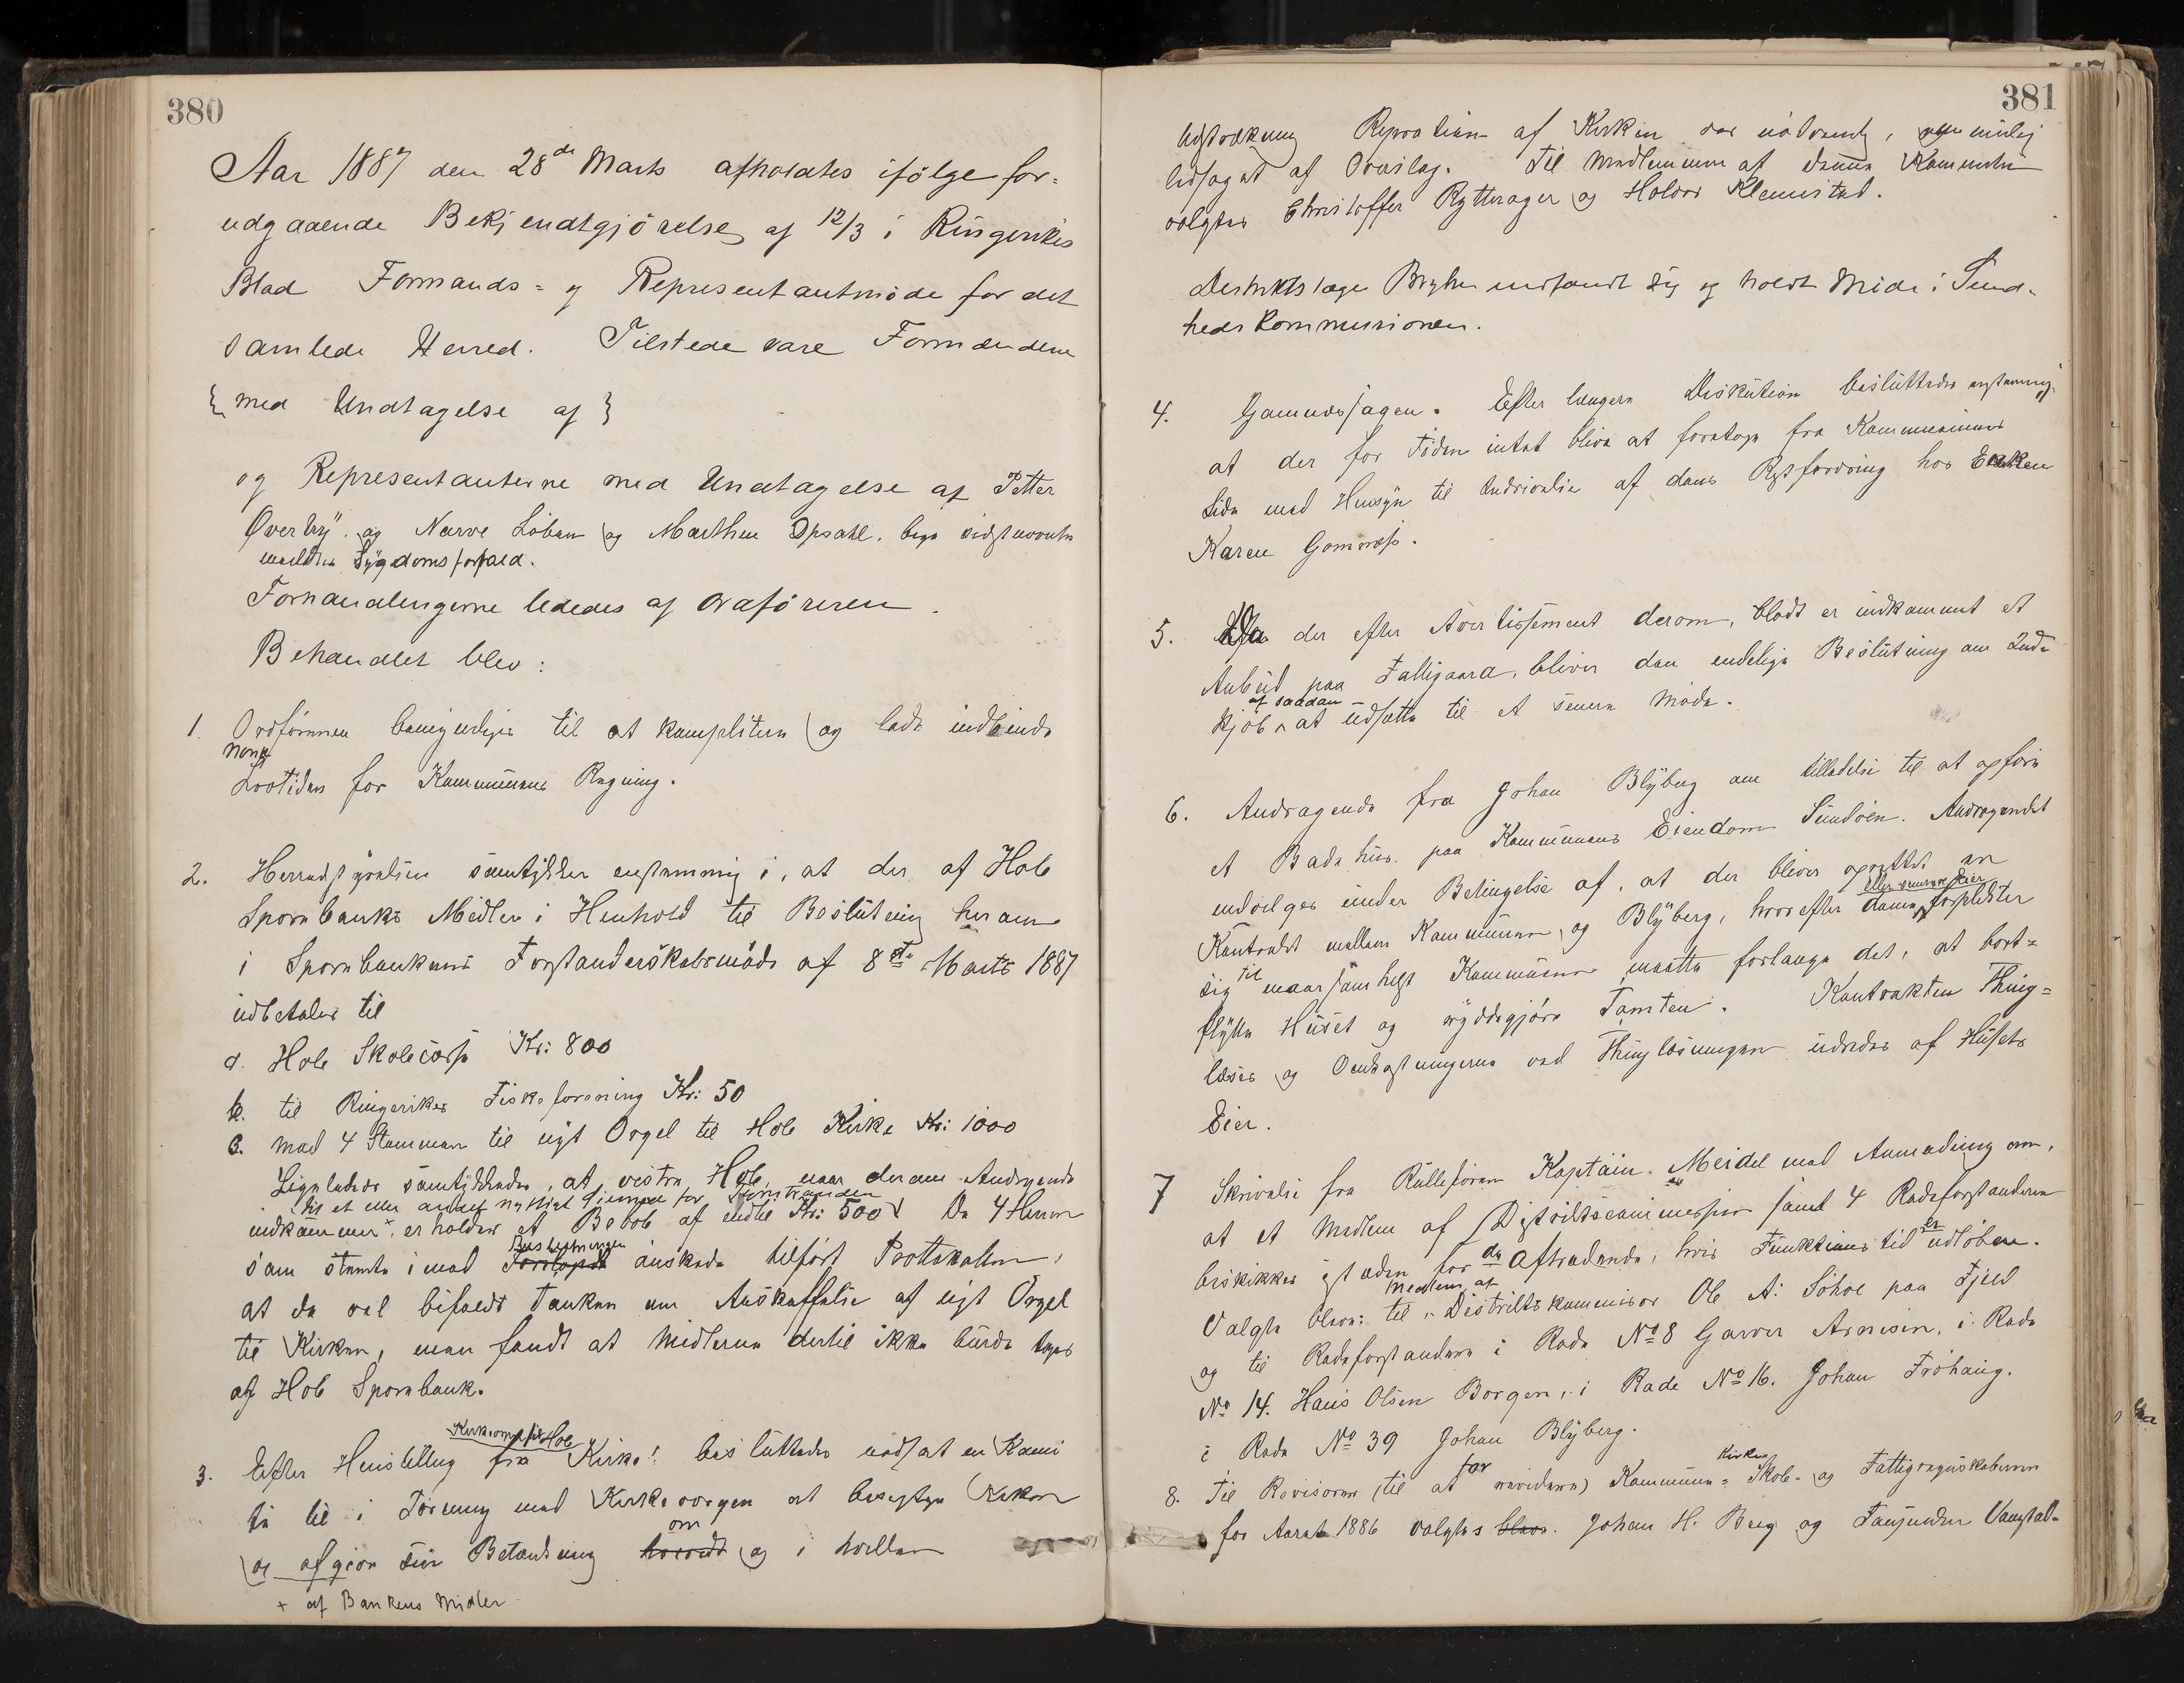 380
Aar 1887 den 28de Marts afholdtes ifölge for=
udgaaende Bekjendtgjörelse af 12/3 i Ringerikes
Blad Formands= og Representantmöde for det
samlede Herred. Tilstede vare Formændene
{med Undtagelse af}
og Representanterne med Undtagelse af Petter
Øverby. og Narve Löbben og Marthin Opsahl. begge sidstnævnte
meldte Sygdomsforfald.
Forhandlingerne lededes af Ordföreren.
Behandlet blev:
1. Ordföreren bemyndiges til at komplitere og lade indbinde
Norsk
Lovtidene for Kommunens Regning.
2. Herredstyrelsen samtykker enstemmig i, at der af Hole
Sparebanks Midler i Henhold til Beslutning herom
i Sparebankens Forstanderskabsmöde af 8de Marts 1887
udbetales til
a. Hole Skolecasse Kr: 800
b. til Ringerikes Fiskeforening Kr: 50
c. mod 4 Stemmer til nyt Orgel til Hole Kirke Kr: 1000
Ligeledes samtykkedes, at vestre Hole, naar derom Andragende
til et eller andet nyttigt Öiemed for
indkommer, erholder et Beløb af indtil Kr: 500 + De 4 Herrer
Beslutningen
som stemte imod Forslaget önskede tilfört Protokollen,
at de vel bifaldt Tanken om Anskaffelse af nyt Orgel
til Kirken, men fandt at Midlerne dertil ikke burde tages
af Hole Sparebank.
Hole
3. Efter Henstilling fra Kirke! besluttedes nedsat en Komi
te til i Forening med Kirkevergen at besigtige Kirken
om
og afgive sin Betænkning hvorvidt og i hvilken
+ af Bankens Midler
381
Udstrækning Reparation af Kirken var nödvendig,
ledsaget af Overslag. Til Medlemmer af denne Kommite
valgtes Christoffer Rytterager og Halvor Klemistad.
Destriktslæge indfandt sig og holdt Möde i Sund-
hedskommisionen.
4. Gomnæssagen. Efter længere Diskution besluttedes enstemmig,
at der for Tiden intet bliver at foretage fra Kommunens
Side med Hensyn til Inddrivelse af dens Restfordring hos Enken
Karen Gomnæs.
5. Da der efter Avertissement derom, blodt er indkommet et
Anbud paa Fattigaard, bliver den endelige Beslutning om Ind-
af saadan
kjöb at udsætte til et senere Möde.
6. Andragende fra Johan Blyberg om Tilladelse til at opföre
et Badehus paa Kommunens Eiendom Sundöen. Andragendet
indvilges under Betingelse af, at der bliver oprettet en
eller senere Eier
Kontrakt mellem Kommunen og Blyberg, hvorefter denne forplikter
sig til naarsomhelst Kommunen maatte forlange det, at bort=
flytte Huset og ryddiggjöre Tomten. Kontrakten Thing=
læses og Omkostningerne ved Thinglæsningen udredes af Husets
Eier.
7 Skrivelse fra Rulleförer Kaptäin Meidel med Anmodning om,
at et Medlem af Distriktscommission samt 4 Rodeforstandere
beskikkes istæden for de Aftrædende, hvis Funktionstid er udlöben.
Medlem af
Valgte bleve: til Distriktskommision Ole A. Søhol paa Fjeld
og til Rodeforstandere i Rode No 8 Garver Arnesen, i Rode
No 14. Hans Olsen Borgen, i Rode No 16. Johan Fröhaug.
i Rode No 39 Johan Blyberg.
Kirke
8. Til Revisorer (til at revidere) Kommune= Skole- og Fattigregnskaberne
for Aaret 1886 valgtes bleve. Johan H. Berg og